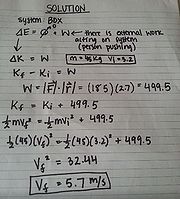 SOLUTION
System: BOX
ΔE = Q + W ← there is external work
acting on system
(person pushing)
ΔK = W
m = 45 kg Vi = 3.2
Kf - Ki = W
W = |F||r| = (18.5)(27) = 499.5
Kf = Ki + 499.5
½mVf² = ½mVi² + 499.5
½(45)(Vf)² = ½(45)(3.2)² + 499.5
Vf² = 32.44
Vf = 5.7 m/s